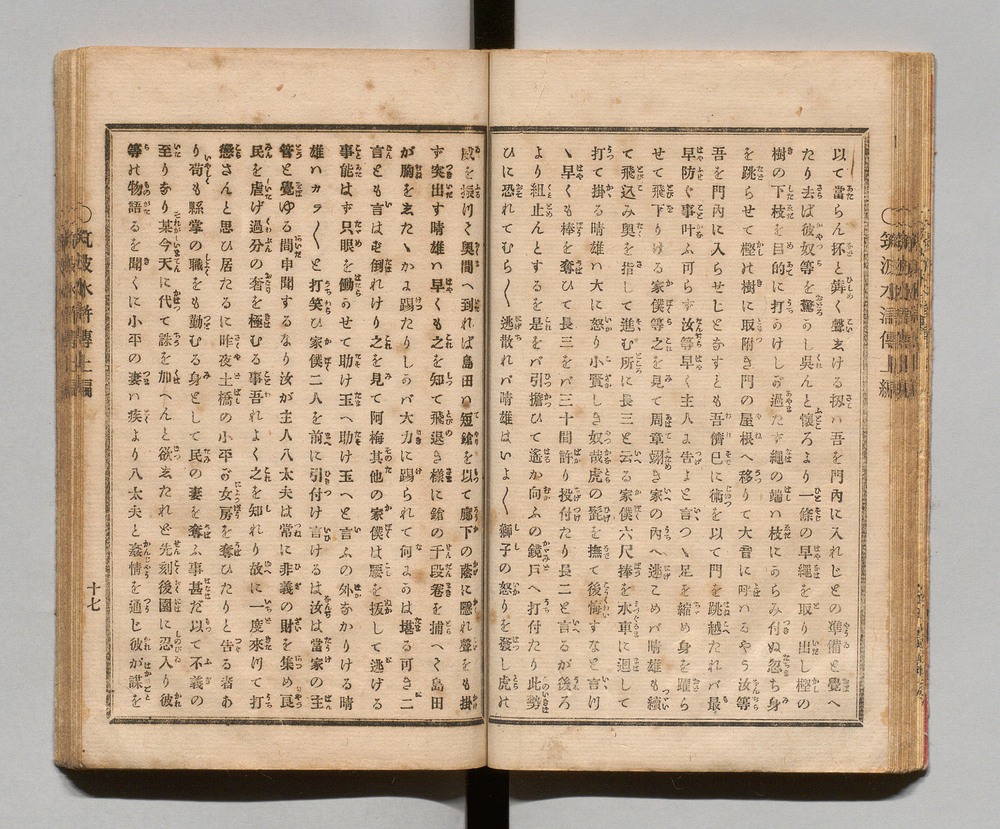 以て當らん抔と犇く聲𛀁ける扨ハ吾を門內に入れじとの準備と覺へ
たり去ば彼奴等を驚し吳んと懷ろより一條の早繩を取り出し樫の
樹の下枝を目的に打つけしが過たず繩の端ハ枝にからみ付ぬ忽ち身
を跳らせて樫の樹に取附き門の屋根へ移りて大音に呼ハるやう汝等
吾を門內に入らせじとなすとも吾儕巳に術を以て門を跳越たれバ最
早防ぐ事叶ふ可らず汝等早く主人に告よと言つゝ足を縮め身を躍ら
せて飛下りける家僕等之を見て周章翊き家の內へ逃こめバ晴雄も續
て飛込み奧を指て進む所に長三と云る家僕六尺捧を水車に廻して
打て掛る晴雄ハ大に怒り小賢しき奴哉虎の髭を撫て後悔すなと言
ゝ早くも棒を奪ひて長三をバ三十間許り投付たり長二と言るが後ろ
より組止んとするを是をバ引擔ひて遙か向ふの鏡戶へ打付たり此勢
ひに恐れてむら〱逃散れバ晴雄はいよ〱獅子の怒りを發し虎の
威を振ひて奧間へ到れば島田ハ短鎗を以て廊下の蔭に隱れ聲をも掛
ず突出す晴雄ハ早くも之を知て飛退き樣に鎗の千段卷を捕へて島田
が胸を𛀁たゝかに踢たりしかバ大力に踢られて何かは堪る可き二
言とも言はず倒れけり之を見て阿梅其他の家僕は腰を拔して逃げる
事能はず只眼を働かせて助け玉へ助け玉へと言ふの外なかりける晴
雄ハカラ〱と打笑ひ家僕二人を前に引付け言けるは汝は當家の主
管と覺ゆる間申聞するなり汝が主人八太夫は常に非義の財を集め良
民を虐げ過分の奢を極むる事吾れよく之を知れり故に一度來りて打
懲さんと思ひ居たるに昨夜土橋の小平が女房を奪ひたりと告る者あ
り苟も縣掌の職をも勤むる身として民の妻を奪ふ事甚だ以て不義の
至りなり某今天に代つて誅を加へんと欲𛀁たれど先刻後園に忍入り彼
等の物語るを聞くに小平の妻ハ疾より八太夫と姦情を通じ彼が謀
筑波水滸傳上編
十七